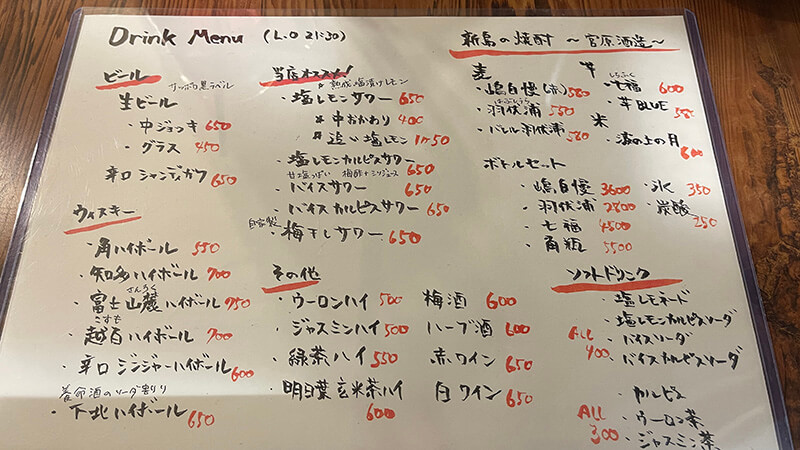 Drink Menu (L.O 21:30)
ビール
サッポロ黒ラベル
生ビール
・中ジョッキ 650
・グラス 450
辛口シャンディガフ 650
ウィスキー
・角ハイボール 550
・知多ハイボール 700
さんろく
・富士山麓ハイボール 750
こすも
・越百ハイボール 700
・辛口ジンジャーハイボール 600
養命酒のソーダ割り
・下北ハイボール 650
当店オススメ!
熟成塩漬けレモン
・塩レモンサワー 650
中おかわり 400
追い塩レモン 1ケ50
・塩レモンカルピスサワー 650
甘塩っぱい 梅酢+ミソジュース
・バイスサワー 650
・バイスカルピスサワー 650
自家製
・梅干しサワー 650
その他
・ウーロンハイ 500
・ジャスミンハイ 500
・緑茶ハイ 550
・明日葉玄米茶ハイ 600
梅酒 600
ハーブ酒 600
赤ワイン 650
白ワイン 650
新島の焼酎 〜宮原酒造〜
麦
・嶋自慢(赤) 580
はぶしうら
・羽伏浦 550
・バレル羽伏浦 580
芋
しちふく
・七福 600
・芋BLUE
米
・波の上の月 600
ボトルセット
・嶋自慢 3600
・羽伏浦 2800
・七福 4500
・角瓶 5500
・氷 350
・炭酸 250
ソフトドリンク
・塩レモネード
・塩レモンカルピスソーダ
・バイスソーダ
・バイスカルピスソーダ
ALL 400
・カルピス
・ウーロン茶
・ジャスミン茶
ALL 300